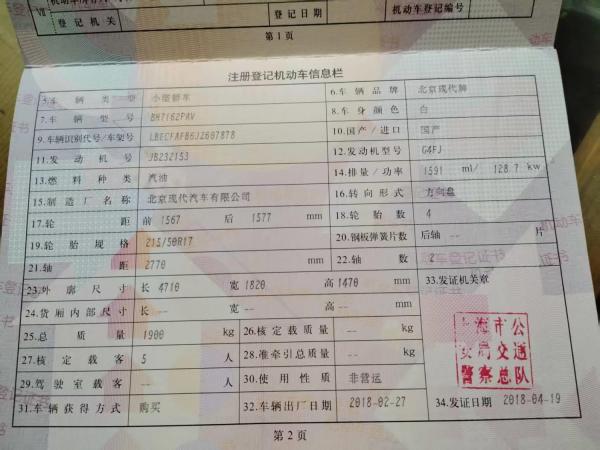 VII
登记机关
登记日期
机动车登记编号
第1页
注册登记机动车信息栏
5.车辆类型 小型轿车 6.车辆品牌 北京现代牌
7.车辆型号 BH7162PAV 8.车身颜色 白
9.车辆识别代号/车架号 LBECFAFB6JZ607878 10.国产/进口 国产
11.发动机号 JB232153 12.发动机型号 G4FJ
13.燃料种类 汽油 14.排量/功率 1591 ml/ 128.7 kw
15.制造厂名称 北京现代汽车有限公司 16.转向形式 方向盘
17.轮距 前 1567 后 1577 mm 18.轮胎数 4
19.轮胎规格 215/50R17 20.钢板弹簧片数 后轴 -- 片
21.轴距 2770 mm 22.轴数 2
23.外廓尺寸 长 4710 宽 1820 高 1470 mm 33.发证机关章
24.货厢内部尺寸 长 -- 宽 -- 高 -- mm
25.总质量 1900 kg 26.核定载质量 -- kg
27.核定载客 5 人 28.准牵引总质量 -- kg
29.驾驶室载客 -- 人 30.使用性质 非营运
31.车辆获得方式 购买 32.车辆出厂日期 2018-02-27 34.发证日期 2018-04-19
上海市公
安局交通
警察总队
第2页